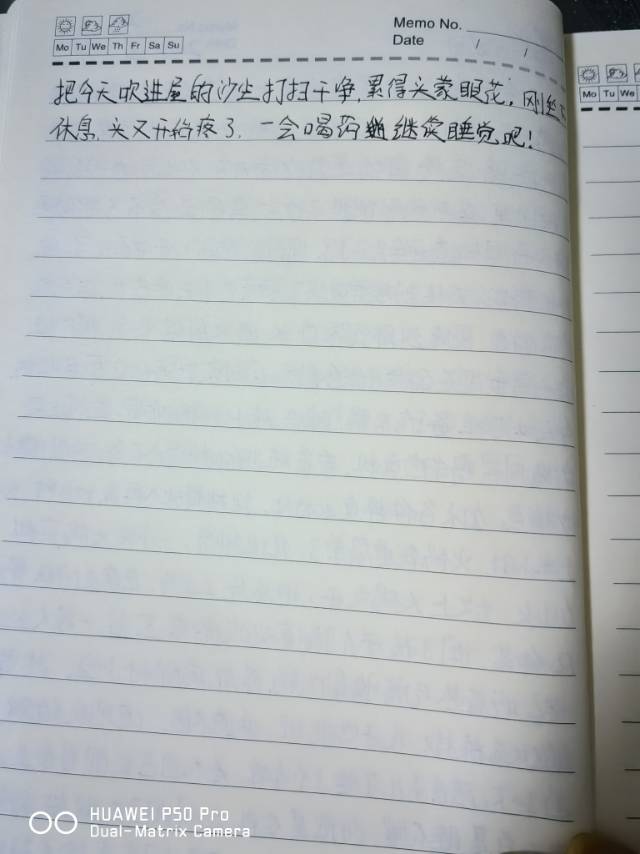 Memo No.
Mo Tu We Th Fr Sa Su
Date / /
把今天吹进屋的沙尘打扫干净,累得头蒙眼花,刚坐下
休息,头又开始疼了,一会喝药继续睡觉吧!
Mo Tu We
HUAWEI P50 Pro
Dual-Matrix Camera